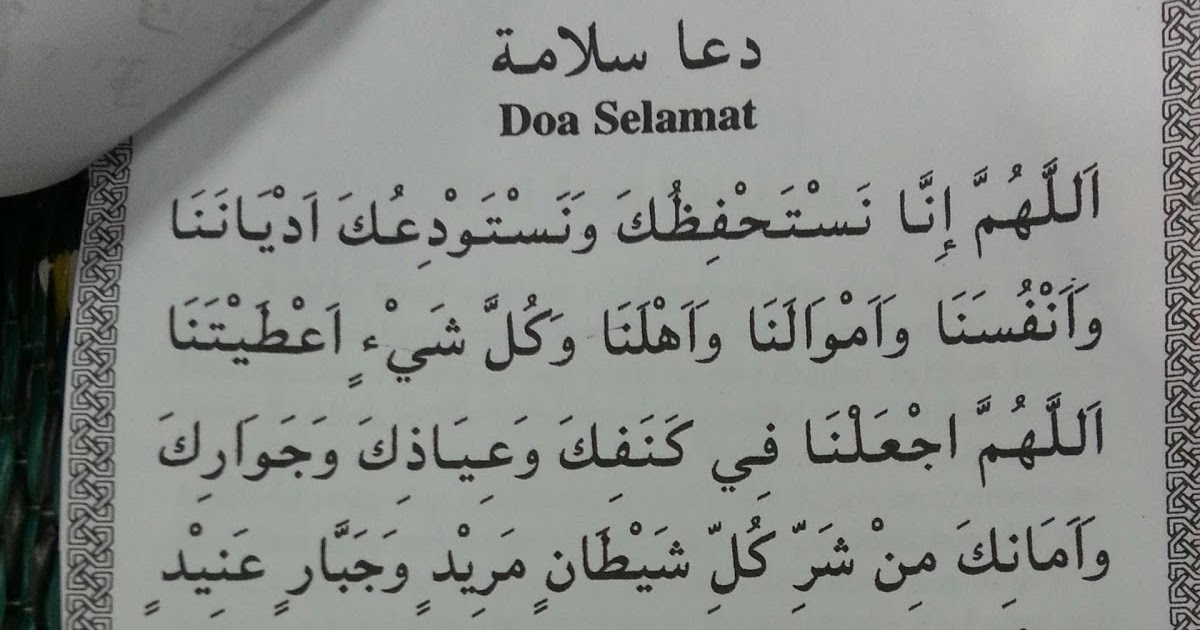 دعا سلامة
Doa Selamat
اَللَّهُمَّ إِنَّا نَسْتَحْفِظُكَ وَنَسْتَوْدِعُكَ اَدْيَانَنَا
وَاَنْفُسَنَا وَاَمْوَالَنَا وَاَهْلَنَا وَكُلَّ شَيْءٍ اَعْطَيْتَنَا
اَللَّهُمَّ اجْعَلْنَا فِي كَنَفِكَ وَعِيَاذِكَ وَجَوَارِكَ
وَاَمَانِكَ مِنْ شَرِّ كُلِّ شَيْطَانٍ مَرِيْدٍ وَجَبَّارٍ عَنِيْدٍ